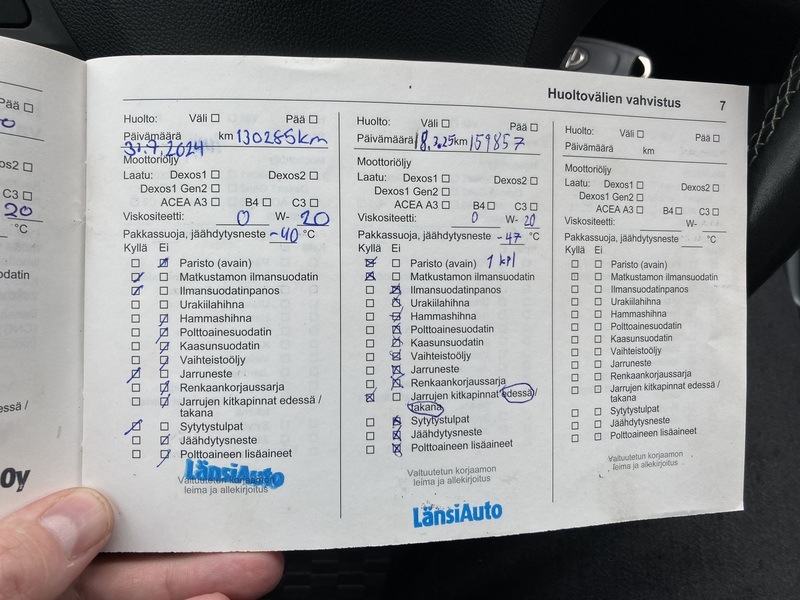 Huoltovälien vahvistus 7
Pää
os2
C3
20
°C
odatin
ssä /
Oy
Huolto: Väli Pää
Päivämäärä km 130285km
31.7.2024
Moottoriöljy
Laatu: Dexos1 Dexos2
Dexos1 Gen2
ACEA A3 B4 C3
Viskositeetti: 0 W- 20
Pakkassuoja, jäähdytysneste -40 °C
Kyllä Ei
Paristo (avain)
Matkustamon ilmansuodatin
Ilmansuodatinpanos
Urakiilahihna
Hammashihna
Polttoainesuodatin
Kaasunsuodatin
Vaihteistoöljy
Jarruneste
Renkaankorjaussarja
Jarrujen kitkapinnat edessä /
takana
Sytytystulpat
Jäähdytysneste
Polttoaineen lisäaineet
LänsiAuto
Valtuutetun korjaamon
leima ja allekirjoitus
Huolto: Väli Pää
Päivämäärä 18.2.25 km 159857
Moottoriöljy
Laatu: Dexos1 Dexos2
Dexos1 Gen2
ACEA A3 B4 C3
Viskositeetti: 0 W- 20
Pakkassuoja, jäähdytysneste -47 °C
Kyllä Ei
Paristo (avain) 1 kpl
Matkustamon ilmansuodatin
Ilmansuodatinpanos
Urakiilahihna
Hammashihna
Polttoainesuodatin
Kaasunsuodatin
Vaihteistoöljy
Jarruneste
Renkaankorjaussarja
Jarrujen kitkapinnat edessä /
takana
Sytytystulpat
Jäähdytysneste
Polttoaineen lisäaineet
Valtuutetun korjaamon
leima ja allekirjoitus
LänsiAuto
Huolto: Väli Pää
Päivämäärä km
Moottoriöljy
Laatu: Dexos1 Dexos2
Dexos1 Gen2
ACEA A3 B4 C3
Viskositeetti: W-
Pakkassuoja, jäähdytysneste °C
Kyllä Ei
Paristo (avain)
Matkustamon ilmansuodatin
Ilmansuodatinpanos
Urakiilahihna
Hammashihna
Polttoainesuodatin
Kaasunsuodatin
Vaihteistoöljy
Jarruneste
Renkaankorjaussarja
Jarrujen kitkapinnat edessä /
takana
Sytytystulpat
Jäähdytysneste
Polttoaineen lisäaineet
Valtuutetun korjaamon
leima ja allekirjoitus